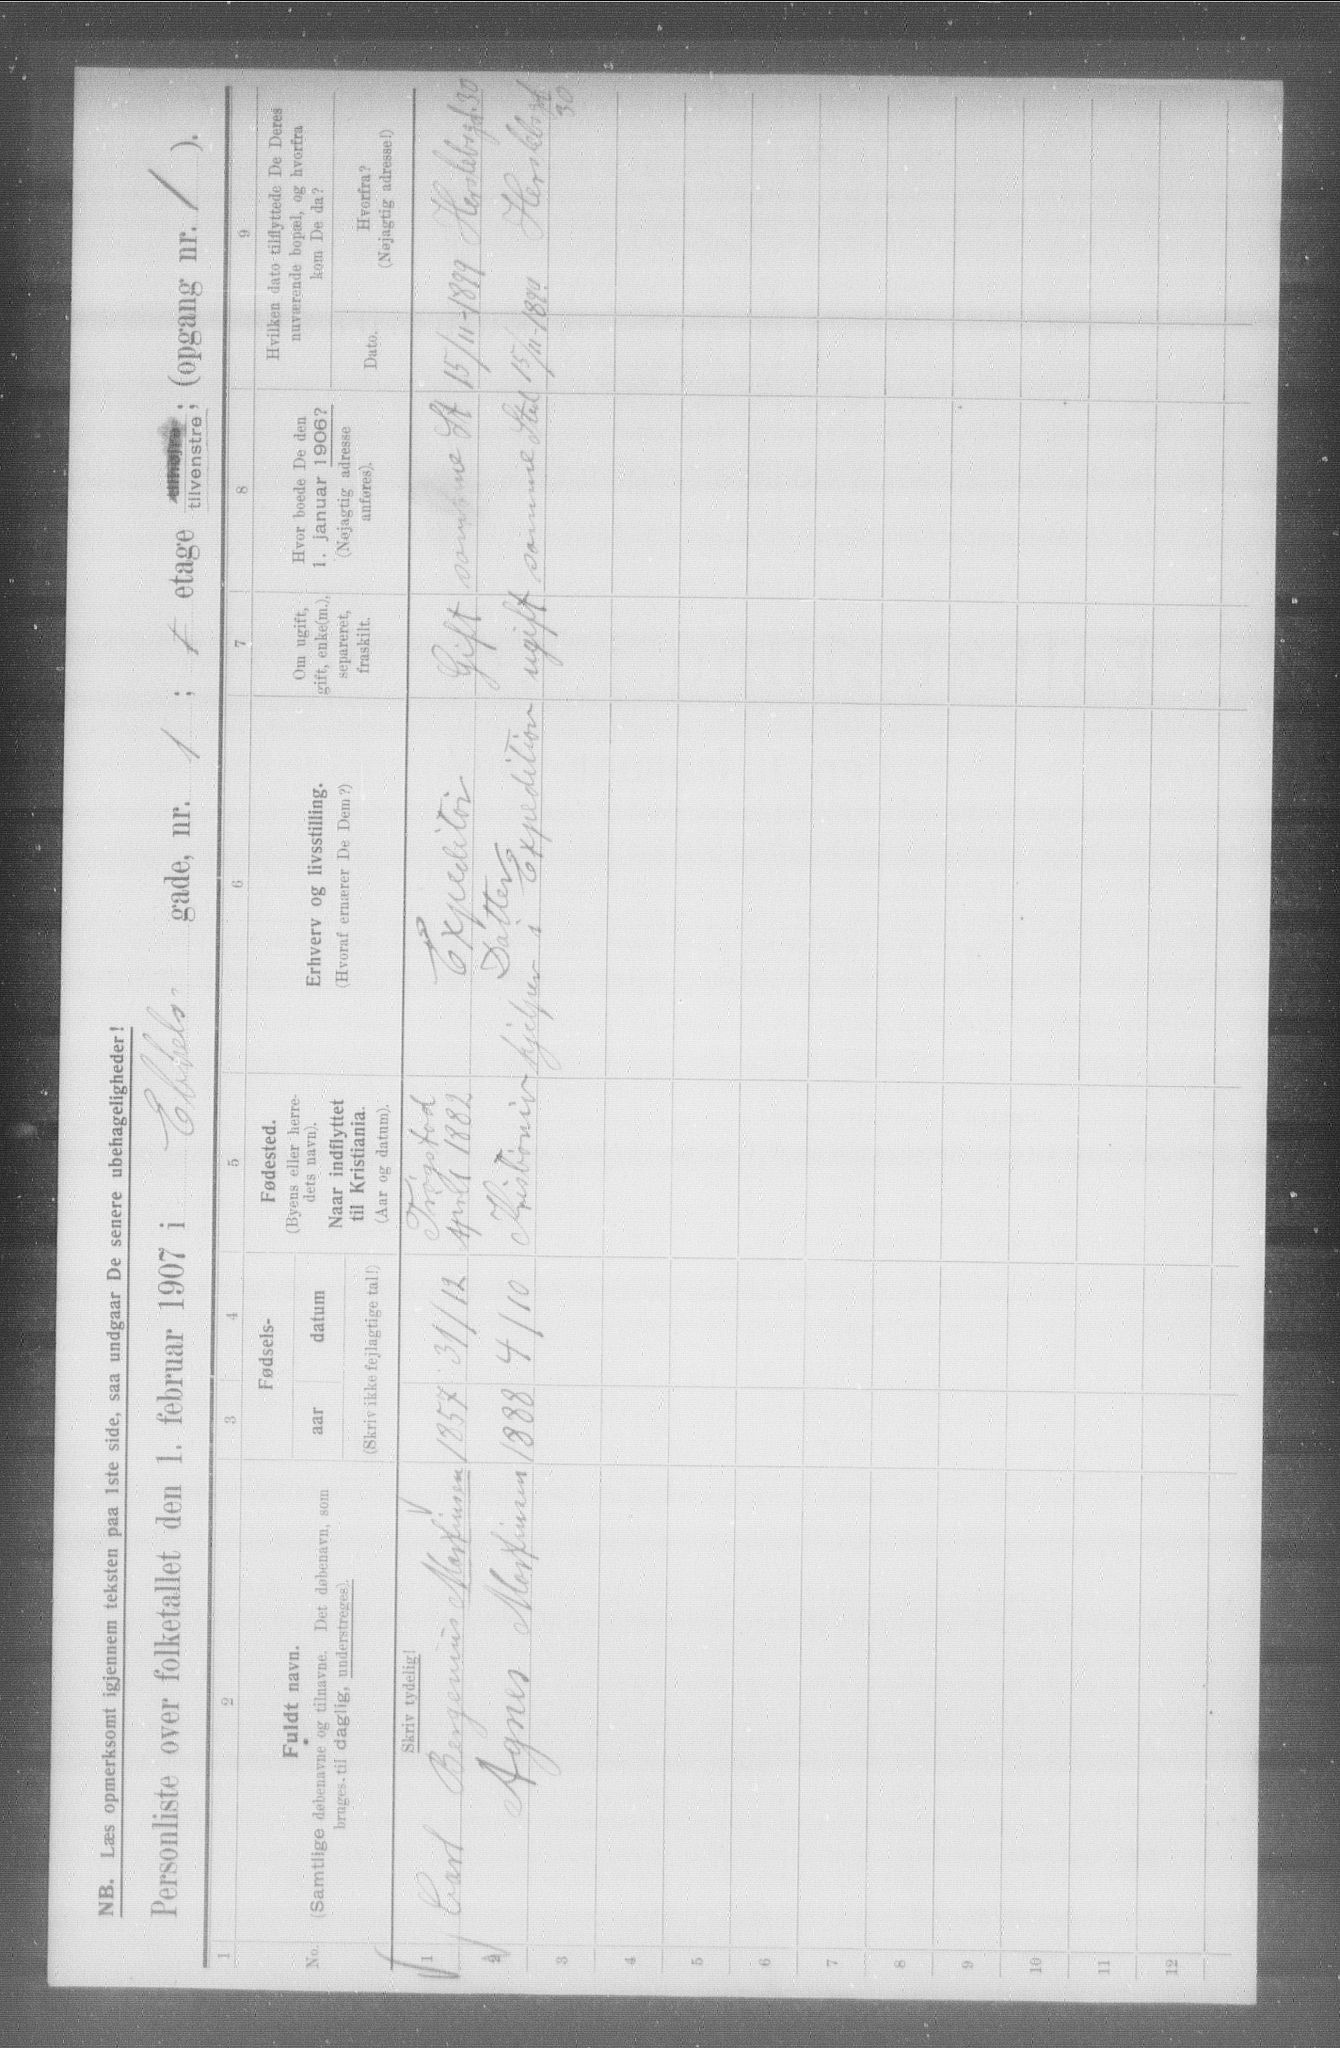 NB. Læs opmerksomt igjennem teksten paa 1ste side, saa undgaar De senere ubehageligheder!
Personliste over folketallet den 1. februar 1907 i Ebbels gade, nr. 1 ; 1 etage tilhøjre tilvenstre; (opgang nr. / ).
1 2 3 4 5 6 7 8 9
No.
Fuldt navn.
(Samtlige døbenavne og tilnavne. Det døbenavn, som
bruges til daglig, understreges).
Fødsels-
aar datum
(Skriv ikke fejlagtige tal!)
Fødested.
(Byens eller herre-
dets navn).
Naar indflyttet
til Kristiania.
(Aar og datum).
Erhverv og livsstilling.
(Hvoraf ernærer De Dem?)
Om ugift,
gift, enke(m.),
separeret,
fraskilt.
Hvor boede De den
1. januar 1906?
(Nøjagtig adresse
anføres).
Hvilken dato tilflyttede De Deres
nuværende bopæl, og hvorfra
kom De da?
Dato.
Hvorfra?
(Nøjagtig adresse!)
Skriv tydelig!
1 Carl Bergenius Martinsen 1857 31/12 Trøgstad April 1882 Expeditør Gift samme St 15/11-1899 Herslebsgd. 30
2 Agnes Martinsen 1888 4/10 Datter hjelper i Expedition ugift samme Sted 15/11-1899 30
3
4
5
6
7
8
9
10
11
12